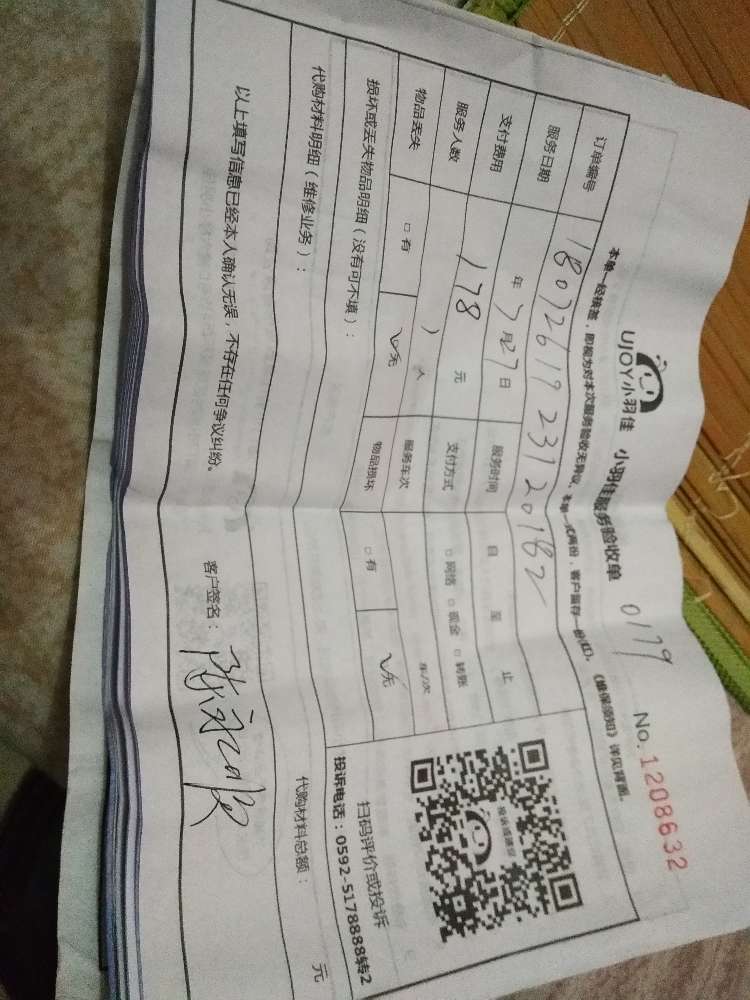 UJOY小羽佳 小羽佳服务验收单 0179 No.1208632
本单一经核签，即视为对本次服务验收无异议。本单一式两份，客户留存一份(红)。《维保须知》详见背面。
订单编号 1807261923120182
服务日期 年7月27日 服务时间 自 至 止
支付费用 178 元 支付方式 □网络 □现金 □转账
服务人数 1人 服务车次 车/次
物品丢失 □有 ☑无 物品损坏 □有 ☑无
投诉或建议
扫码评价或投诉
投诉电话：0592-5178888转2
损坏或丢失物品明细（没有可不填）：
代购材料明细（维修业务）： 代购材料总额： 元
以上填写信息已经本人确认无误，不存在任何争议纠纷。 客户签名：